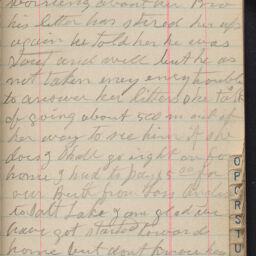 worrying about her Bro
his letter has stired her up
again he told her he was
Sweet and well but he as
not taken any enny trouble
to answer her letters she talks
of going about 500 m out of
her way to see him if she
does I shall go right on for
home I had to pay $5.00 for
our Burth from Los Angles
to Salt Lake I am glad we
have got started toward
home but dont know how
O
P
Q
R
S
T
U